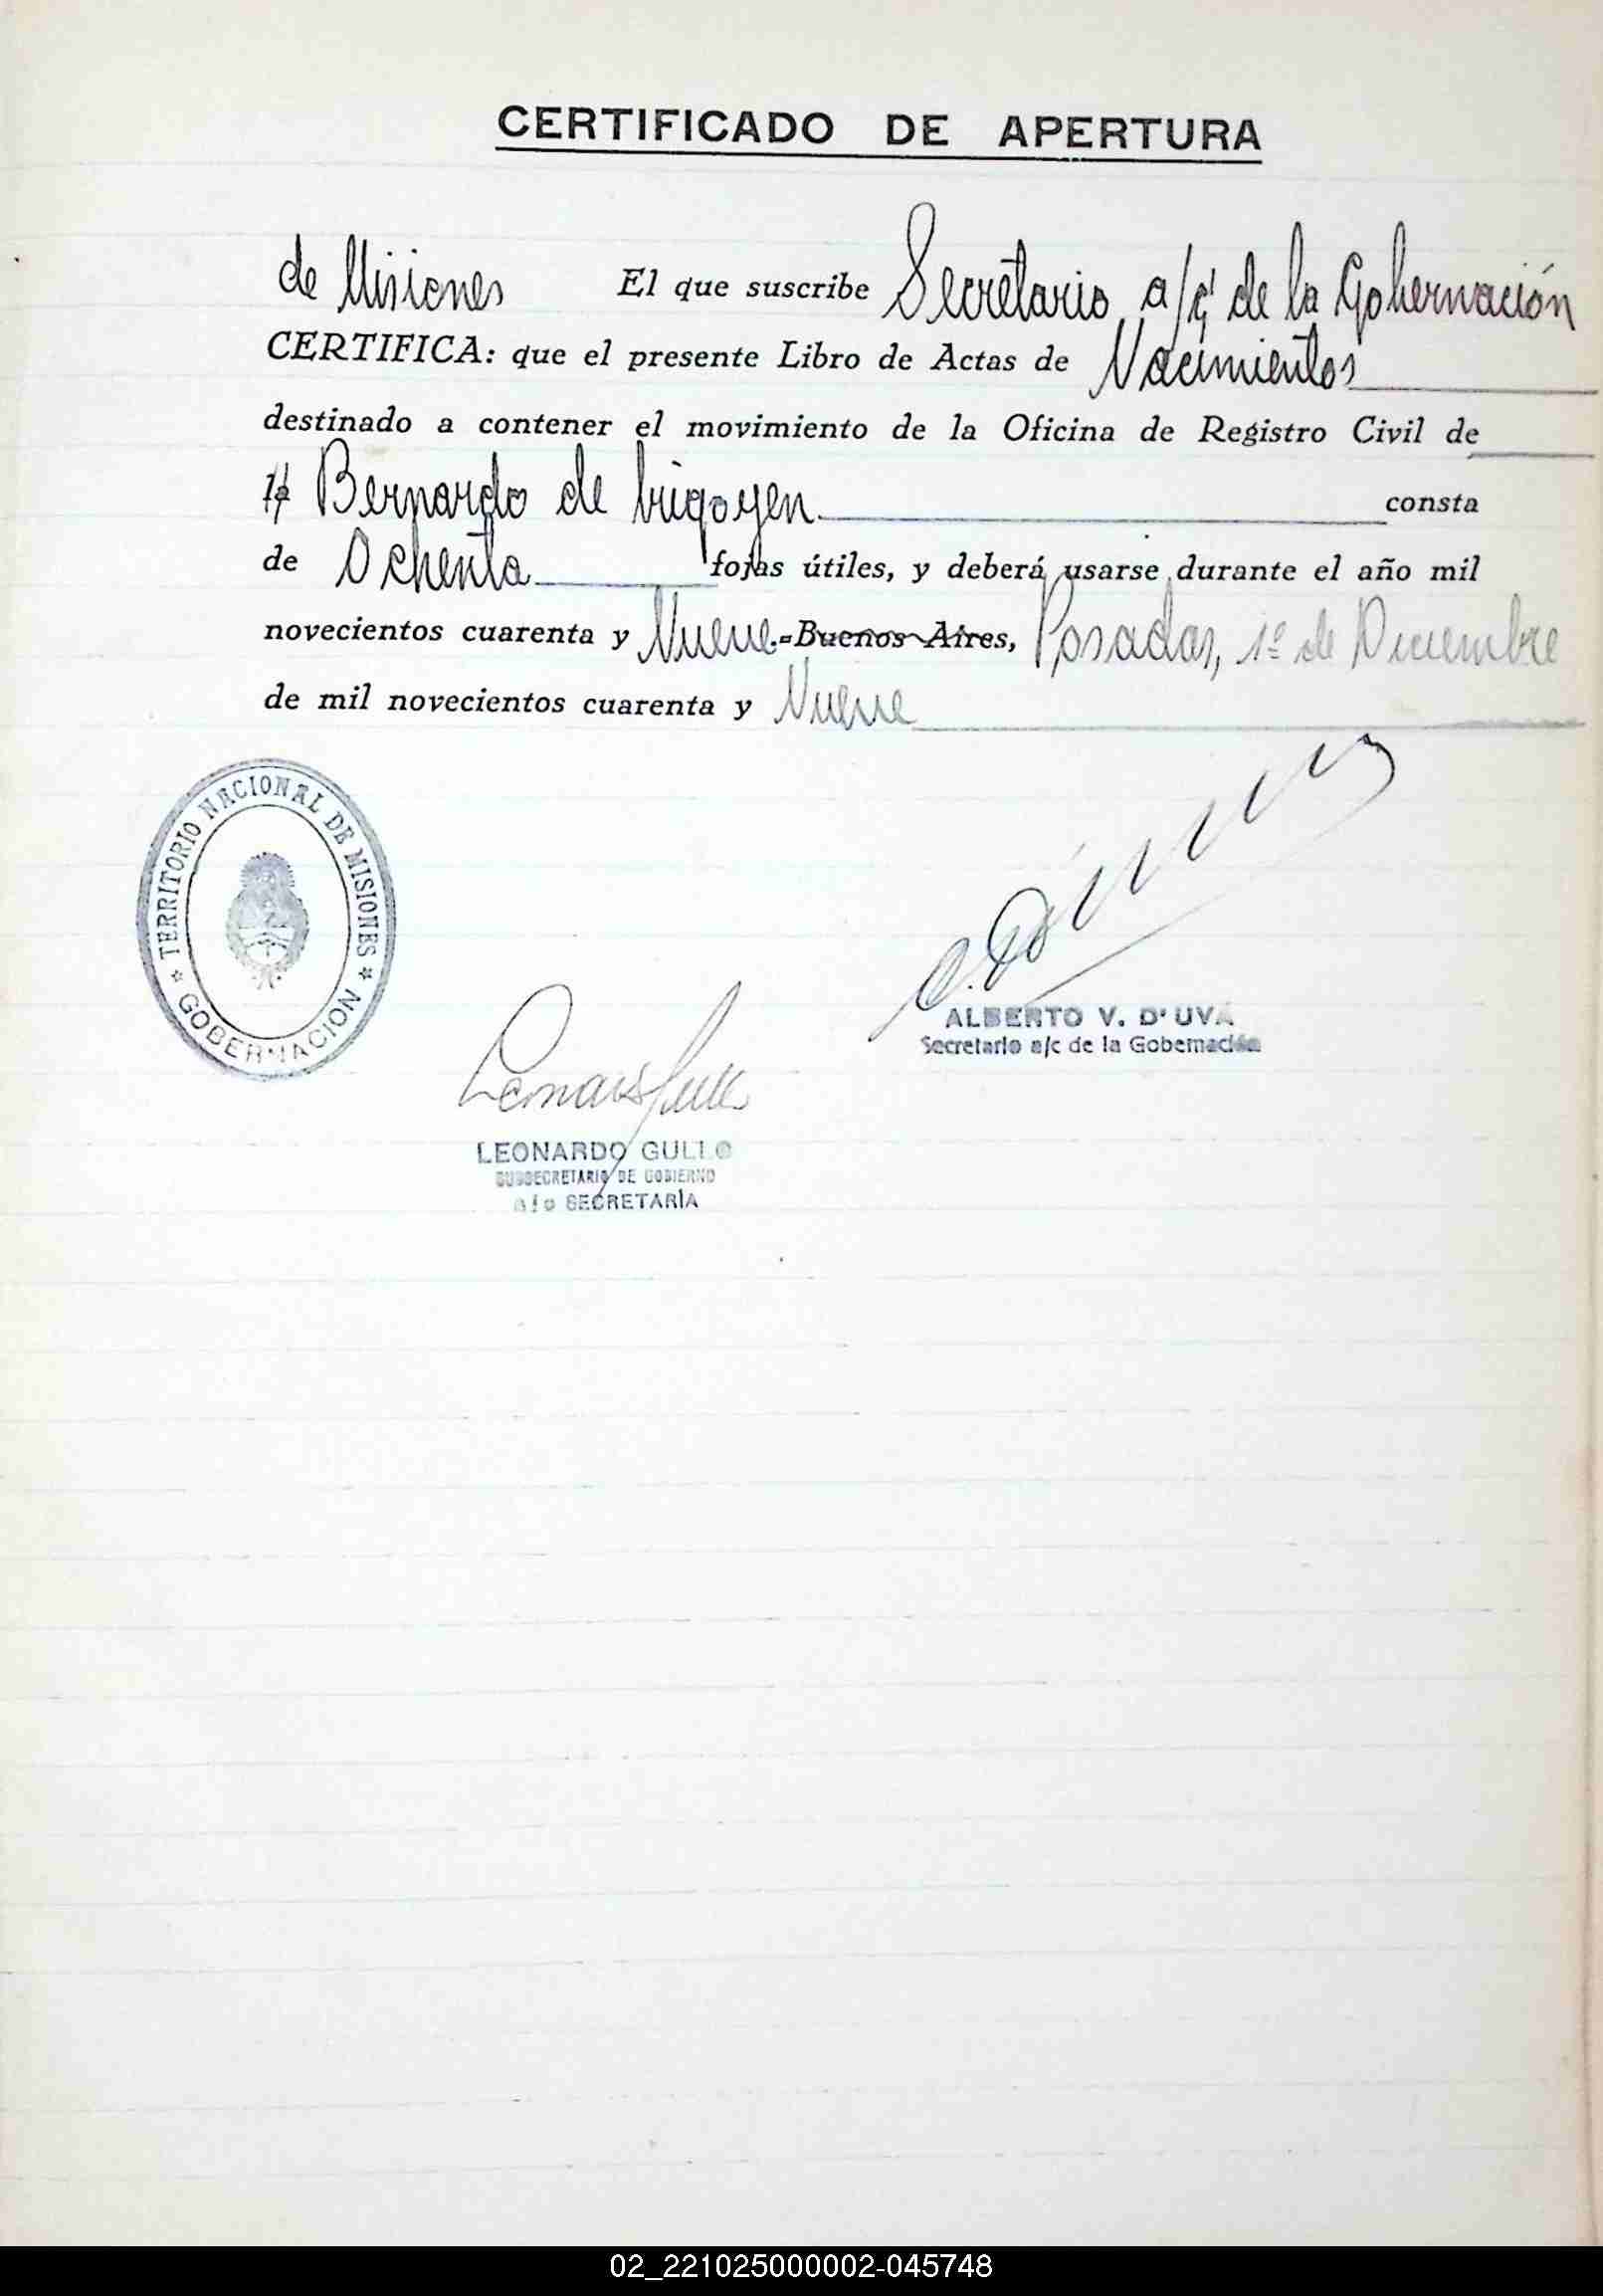 CERTIFICADO DE APERTURA
de Misiones El que suscribe Secretario a/c de la Gobernación
CERTIFICA: que el presente Libro de Actas de Nacimientos
destinado a contener el movimiento de la Oficina de Registro Civil de
Bernardo de Irigoyen consta
de Ochenta fojas útiles, y deberá usarse durante el año mil
novecientos cuarenta y Nueve.=Buenos Aires, Posadas, 1º de Diciembre
de mil novecientos cuarenta y Nueve
TERRITORIO NACIONAL DE MISIONES
GOBERNACION
ALBERTO V. D'UVA
Secretario a/c de la Gobernación
LEONARDO GULLO
SUBSECRETARIO DE GOBIERNO
a/c SECRETARÍA
02_221025000002-045748